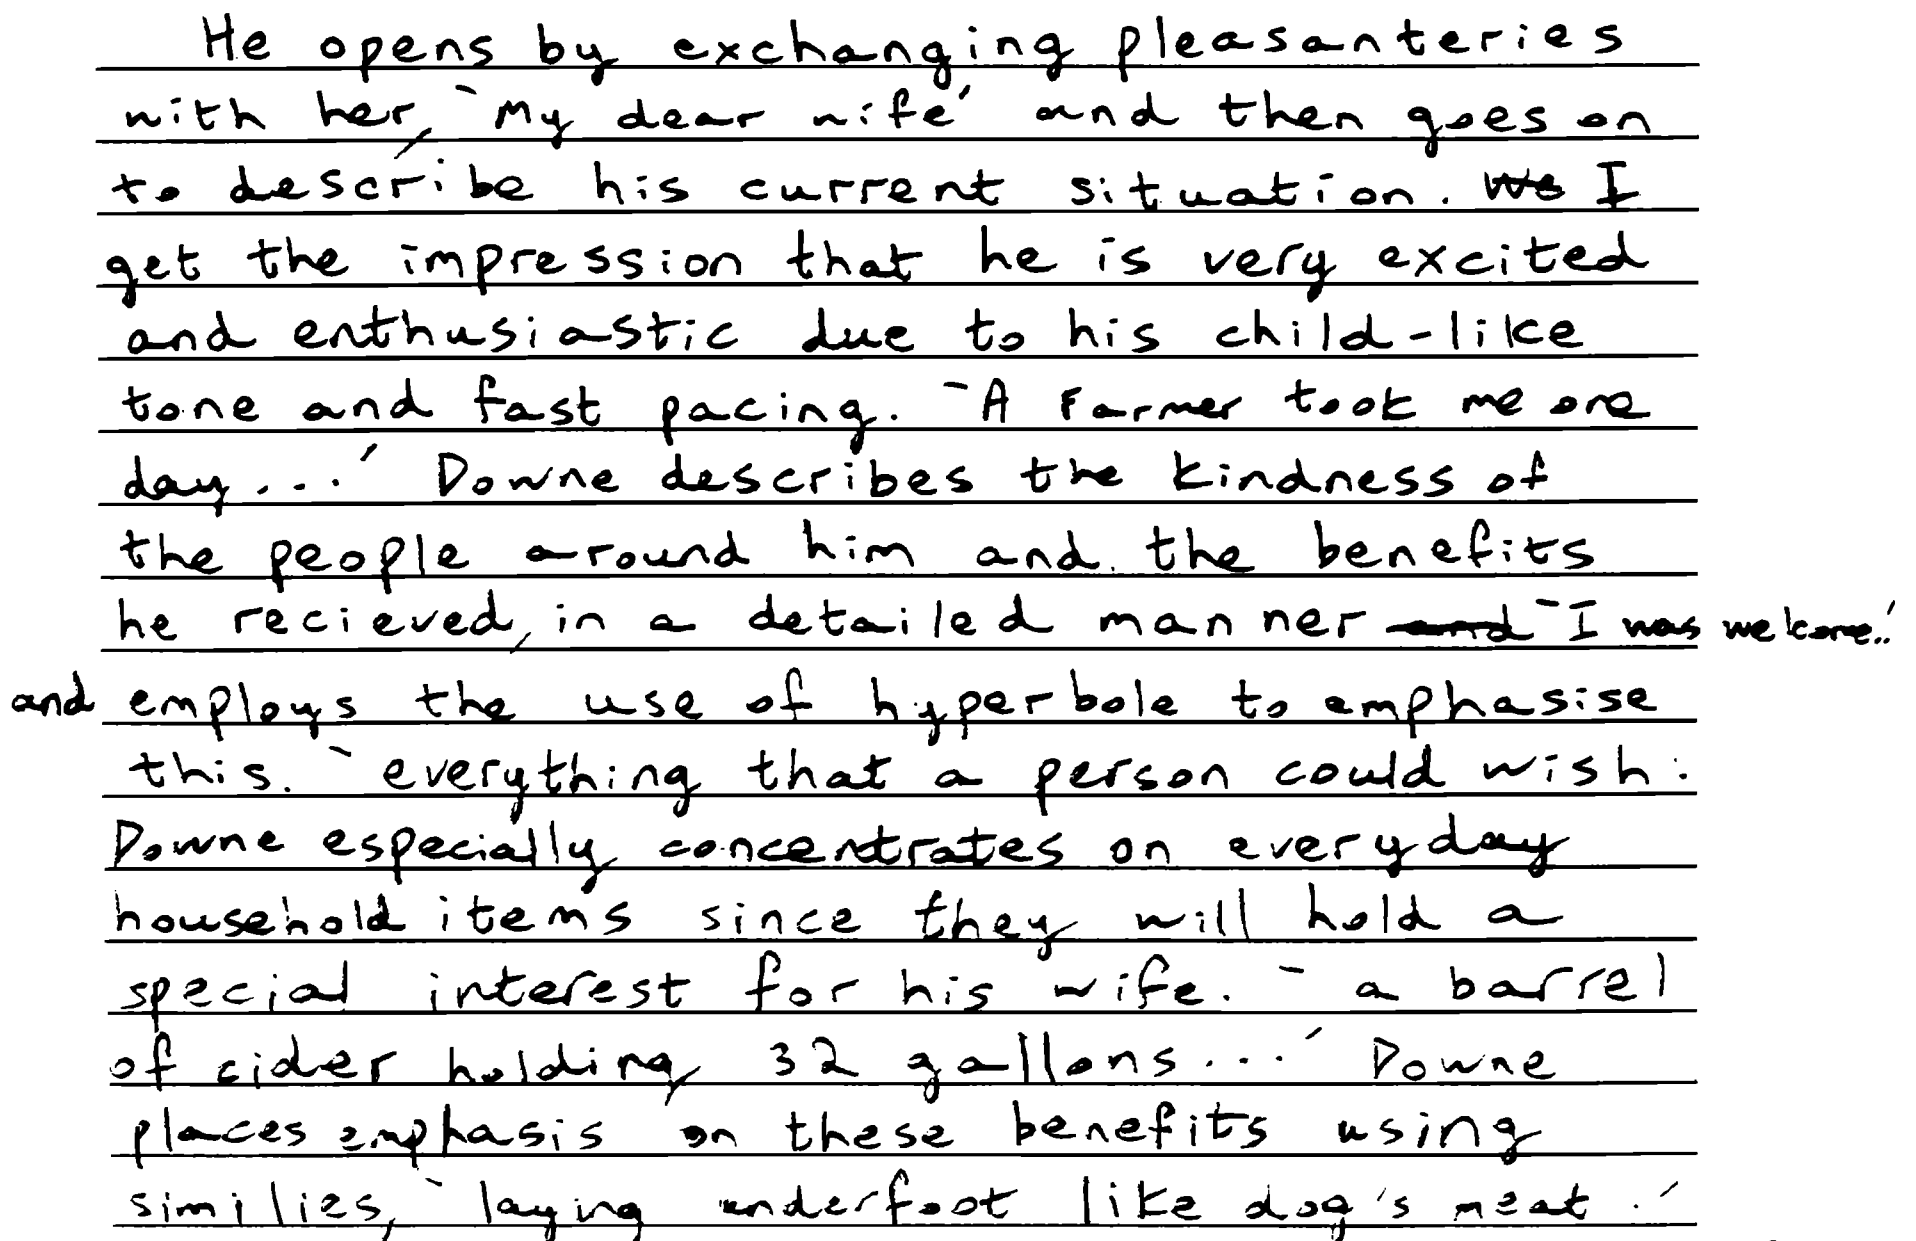 He opens by exchanging pleasanteries
with her, 'My dear wife' and then goes on
to describe his current situation. We I
get the impression that he is very excited
and enthusiastic due to his child-like
tone and fast pacing. 'A Farmer took me one
day...' Downe describes the kindness of
the people around him and the benefits
he recieved, in a detailed manner and 'I was welcome..'
and employs the use of hyperbole to emphasise
this. 'everything that a person could wish.'
Downe especially concentrates on everyday
household items since they will hold a
special interest for his wife. 'a barrel
of cider holding 32 gallons...' Downe
places emphasis on these benefits using
similies, 'laying underfoot like dog's meat.'